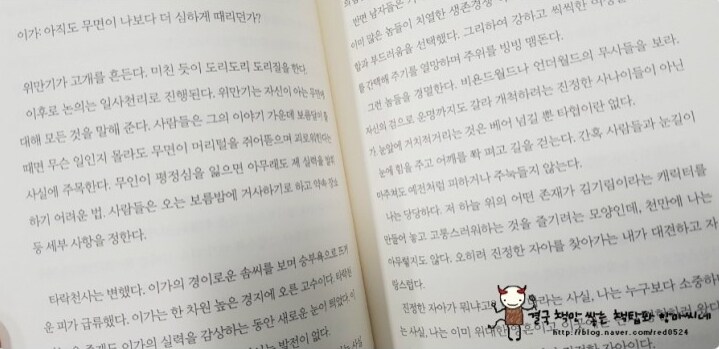 이가: 아직도 무면이 나보다 더 심하게 때리던가?
위만기가 고개를 흔든다. 미친 듯이 도리도리 도리질을 한다.
이후로 논의는 일사천리로 진행된다. 위만기는 자신이 아는 무면에
대해 모든 것을 말해 준다. 사람들은 그의 이야기 가운데 보름달이 뜰
때면 무슨 일인지 몰라도 무면이 머리털을 쥐어뜯으며 괴로워한다는
사실에 주목한다. 무인이 평정심을 잃으면 아무래도 제 실력을 발휘
하기 어려운 법. 사람들은 오는 보름밤에 거사하기로 하고 약속 장소
등 세부 사항을 정한다.
타락천사는 변했다. 이가의 경이로운 솜씨를 보며 승부욕으로 뜨거
운 피가 급류했다. 이가는 한 차원 높은 경지에 오른 고수이다. 타락천
이가의 실력을 감상하는 동안 새로운 눈이 떠졌다.
발전이 없다.
반면 남자들은
이미 많은 놈들이 치열한 생존경쟁
함과 부드러움을 선택했다. 그리하여 강하고 씩씩한
를 간택해 주기를 열망하며 주위를 빙빙 맴돈다.
그런 놈들을 경멸한다. 비욘드월드나 언더월드의 무사들을 보라.
자신의 검으로 운명까지도 갈라 개척하려는 진정한 사나이들이 아닌
가. 눈앞에 거치적거리는 것은 베어 넘길 뿐 타협이란 없다.
눈에 힘을 주고 어깨를 쫙 펴고 길을 걷는다. 간혹 사람들과 눈길이
마주쳐도 예전처럼 피하거나 주눅들지 않는다.
나는 당당하다. 저 하늘 위의 어떤 존재가 김기림이라는 캐릭터를
만들어 놓고 고통스러워하는 것을 즐기려는 모양인데, 천만에 나는
아무렇지도 않다. 오히려 진정한 자아를 찾아가는 내가 대견하고 자
랑스럽다.
진정한 자아가 뭐냐고 라는 사실, 나는 누구보다 소중하
는 사실, 나는 이미 위대한
진정한 자아다.
결국 책만 쌓는 책탑파 앙마씨네
http://blog.naver.com/red0524